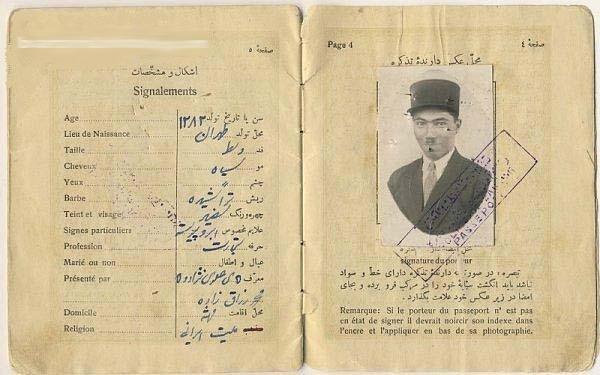 صفحهٔ ٥
اشکال و مشخّصات
Signalements
Age سن یا تاریخ تولد ۱۲۸۲
Lieu de Naissance محلّ تولد طهران
Taille قد وسط
Cheveux مو سیاه
Yeux چشم
Barbe ریش تراشیده
Teint et visage چهره و رنگ
Signes particuliers علایم مخصوص ابرو پیوسته
Profession حرفه تجارت
Marié ou non عیال و اطفال
Présenté par معرّف
Domicile محلّ اقامت
Religion ملیت ایرانی
Page 4 صفحهٔ ٤
محلّ عکس دارندهٔ تذکره
PASSEPORT
signature du porteur
تبصره، در صورتی که دارندهٔ تذکره دارای خطّ و سواد
نباشد باید انگشت سبّابهٔ خود را در مرکب فرو برده و بجای
امضا در زیر عکس خود علامت بگذارد.
Remarque: Si le porteur du passeport n' est pas
en état de signer il devrait noircir son indexe dans
l'encre et l'appliquer en bas de sa photographie.